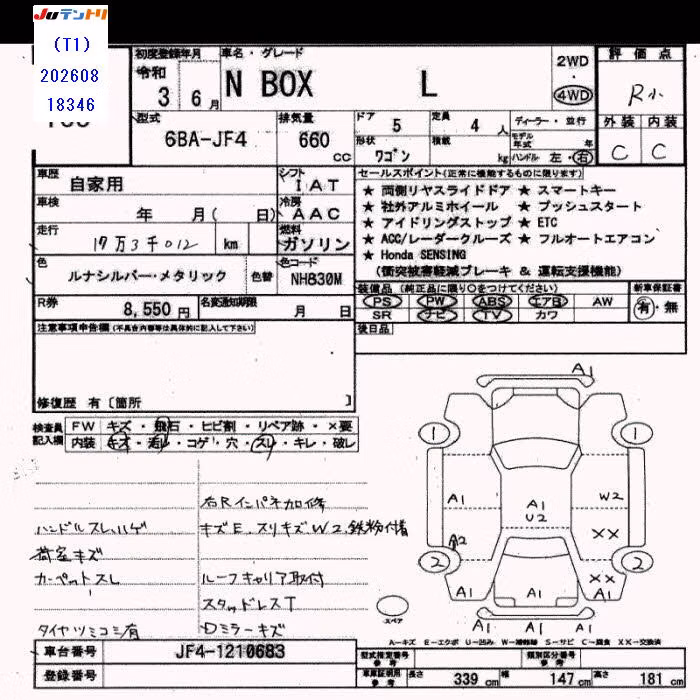 JUテントリ
(T1)
202608
18346
初度登録年月
令和
3 6月
車名・グレード
N BOX L
2WD
・
4WD
評価点
R小
外装 内装
C C
型式
6BA-JF4
排気量
660 cc
ドア
5
定員
4 人
ディーラー・並行
形状
ワゴン
積載
kg
モデル年式 年
ハンドル 左・右
車歴
自家用
シフト
IAT
車検
年 月( 日)
冷房
AAC
走行
17万3千012 km
燃料
ガソリン
色
ルナシルバー・メタリック
色替
色コード
NH830M
R券
8,550円
名変通知期限
月 日
セールスポイント(正常に機能するものに限ります)
★ 両側リヤスライドドア ★ スマートキー
★ 社外アルミホイール ★ プッシュスタート
★ アイドリングストップ ★ ETC
★ ACC/レーダークルーズ ★ フルオートエアコン
★ Honda SENSING
(衝突被害軽減ブレーキ & 運転支援機能)
装備品 (純正品に限り○をつけてください)
PS PW ABS エアB AW
SR ナビ TV カワ
新車保証書
有・無
後日品
注意事項申告欄(不具合内容等は具体的に記入して下さい)
修復歴 有〔箇所 〕
検査員記入欄
FW キズ・飛石・ヒビ割・リペア跡・×要
内装 キズ・汚れ・コゲ・穴・スレ・キレ・破レ
右Rインパネ加修
ハンドルスレ,ハゲ
キズE,スリキズW2,鉄粉付着
荷室キズ
カーペットスレ
ルーフキャリア取付
スタッドレスT
タイヤツミコミ有
Dミラーキズ
A1
1 1
A1 A1 U2 W2
A2 XX
2 2
XX
A1 A1 A1
A1 A1 A1
スペア
A-キズ E-エクボ U-凹み W-補修跡 S-サビ C-腐食 XX-交換済
車台番号
JF4-1210683
登録番号
型式指定番号 参考
類別区分番号 参考
車庫証明用 参考
長さ 339 cm 幅 147 cm 高さ 181 cm